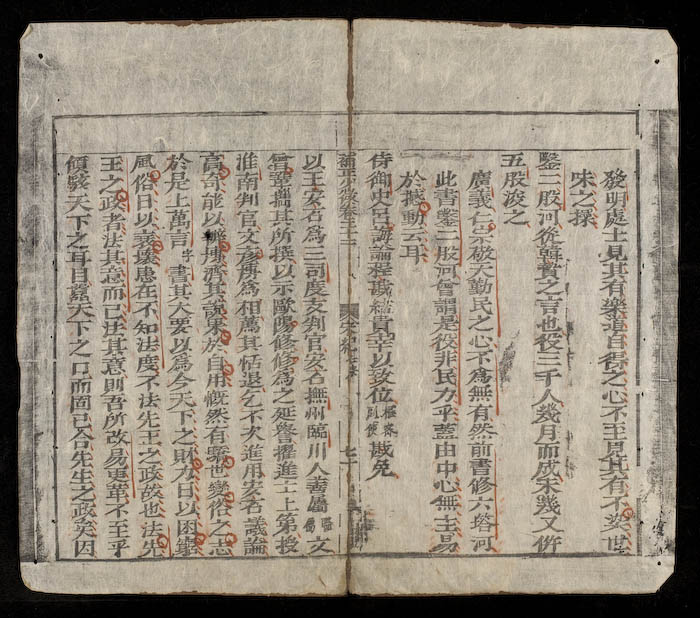 發明處士見其有樂道自得之心不至見其有不染世
味之操
鑿二股河從韓贄之言也役三千人幾月而成未幾又併
五股浚之
廣義仁宗敬天勤民之心不爲無有然前書修六塔河
此書鑿二股河會謂是役非民力乎蓋由中心無主易
於撼動云耳
侍御史呂誨論程戡結貴幸以致位戡免
以王安石爲三司度支判官安石撫州臨川人善屬文
曾鞏攜其所撰以示歐陽修修爲之延譽擢進士上第授
淮南判官文彥博爲相薦其恬退乞不次進用安石議論
高奇能以辨博濟其說果於自用慨然有矯世變俗之志
於是上萬言書其大要以爲今天下之財力日以困窮
風俗日以衰壞患在不知法度不法先王之政故也法先
王之政者法其意而已法其意則吾所改易更革不至乎
傾駭天下之耳目囂天下之口而固已合先王之政矣因